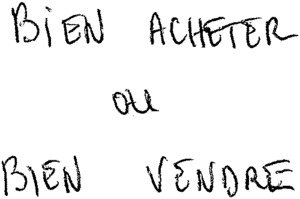 BIEN ACHETER
ou
BIEN VENDRE